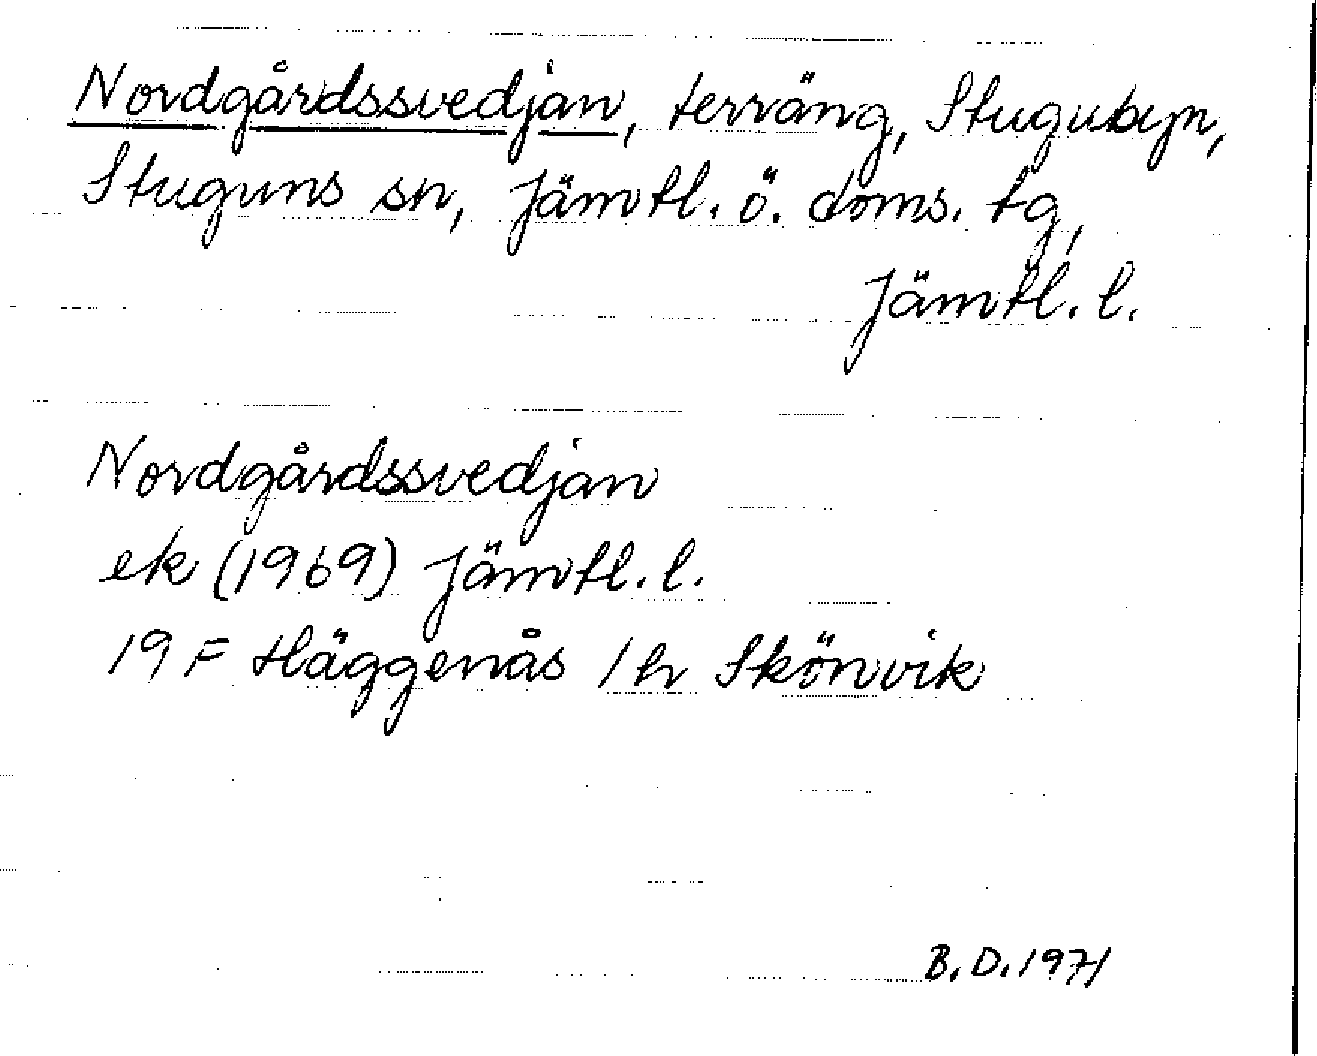 Nordgårdssvedjan, terräng, Stugubyn,
Stuguns sn, Jämtl. ö. doms. tg,
Jämtl. l.
Nordgårdssvedjan
ek (1969) Jämtl. l.
19 F Häggenås 1 h Skönvik
B. D. 1971